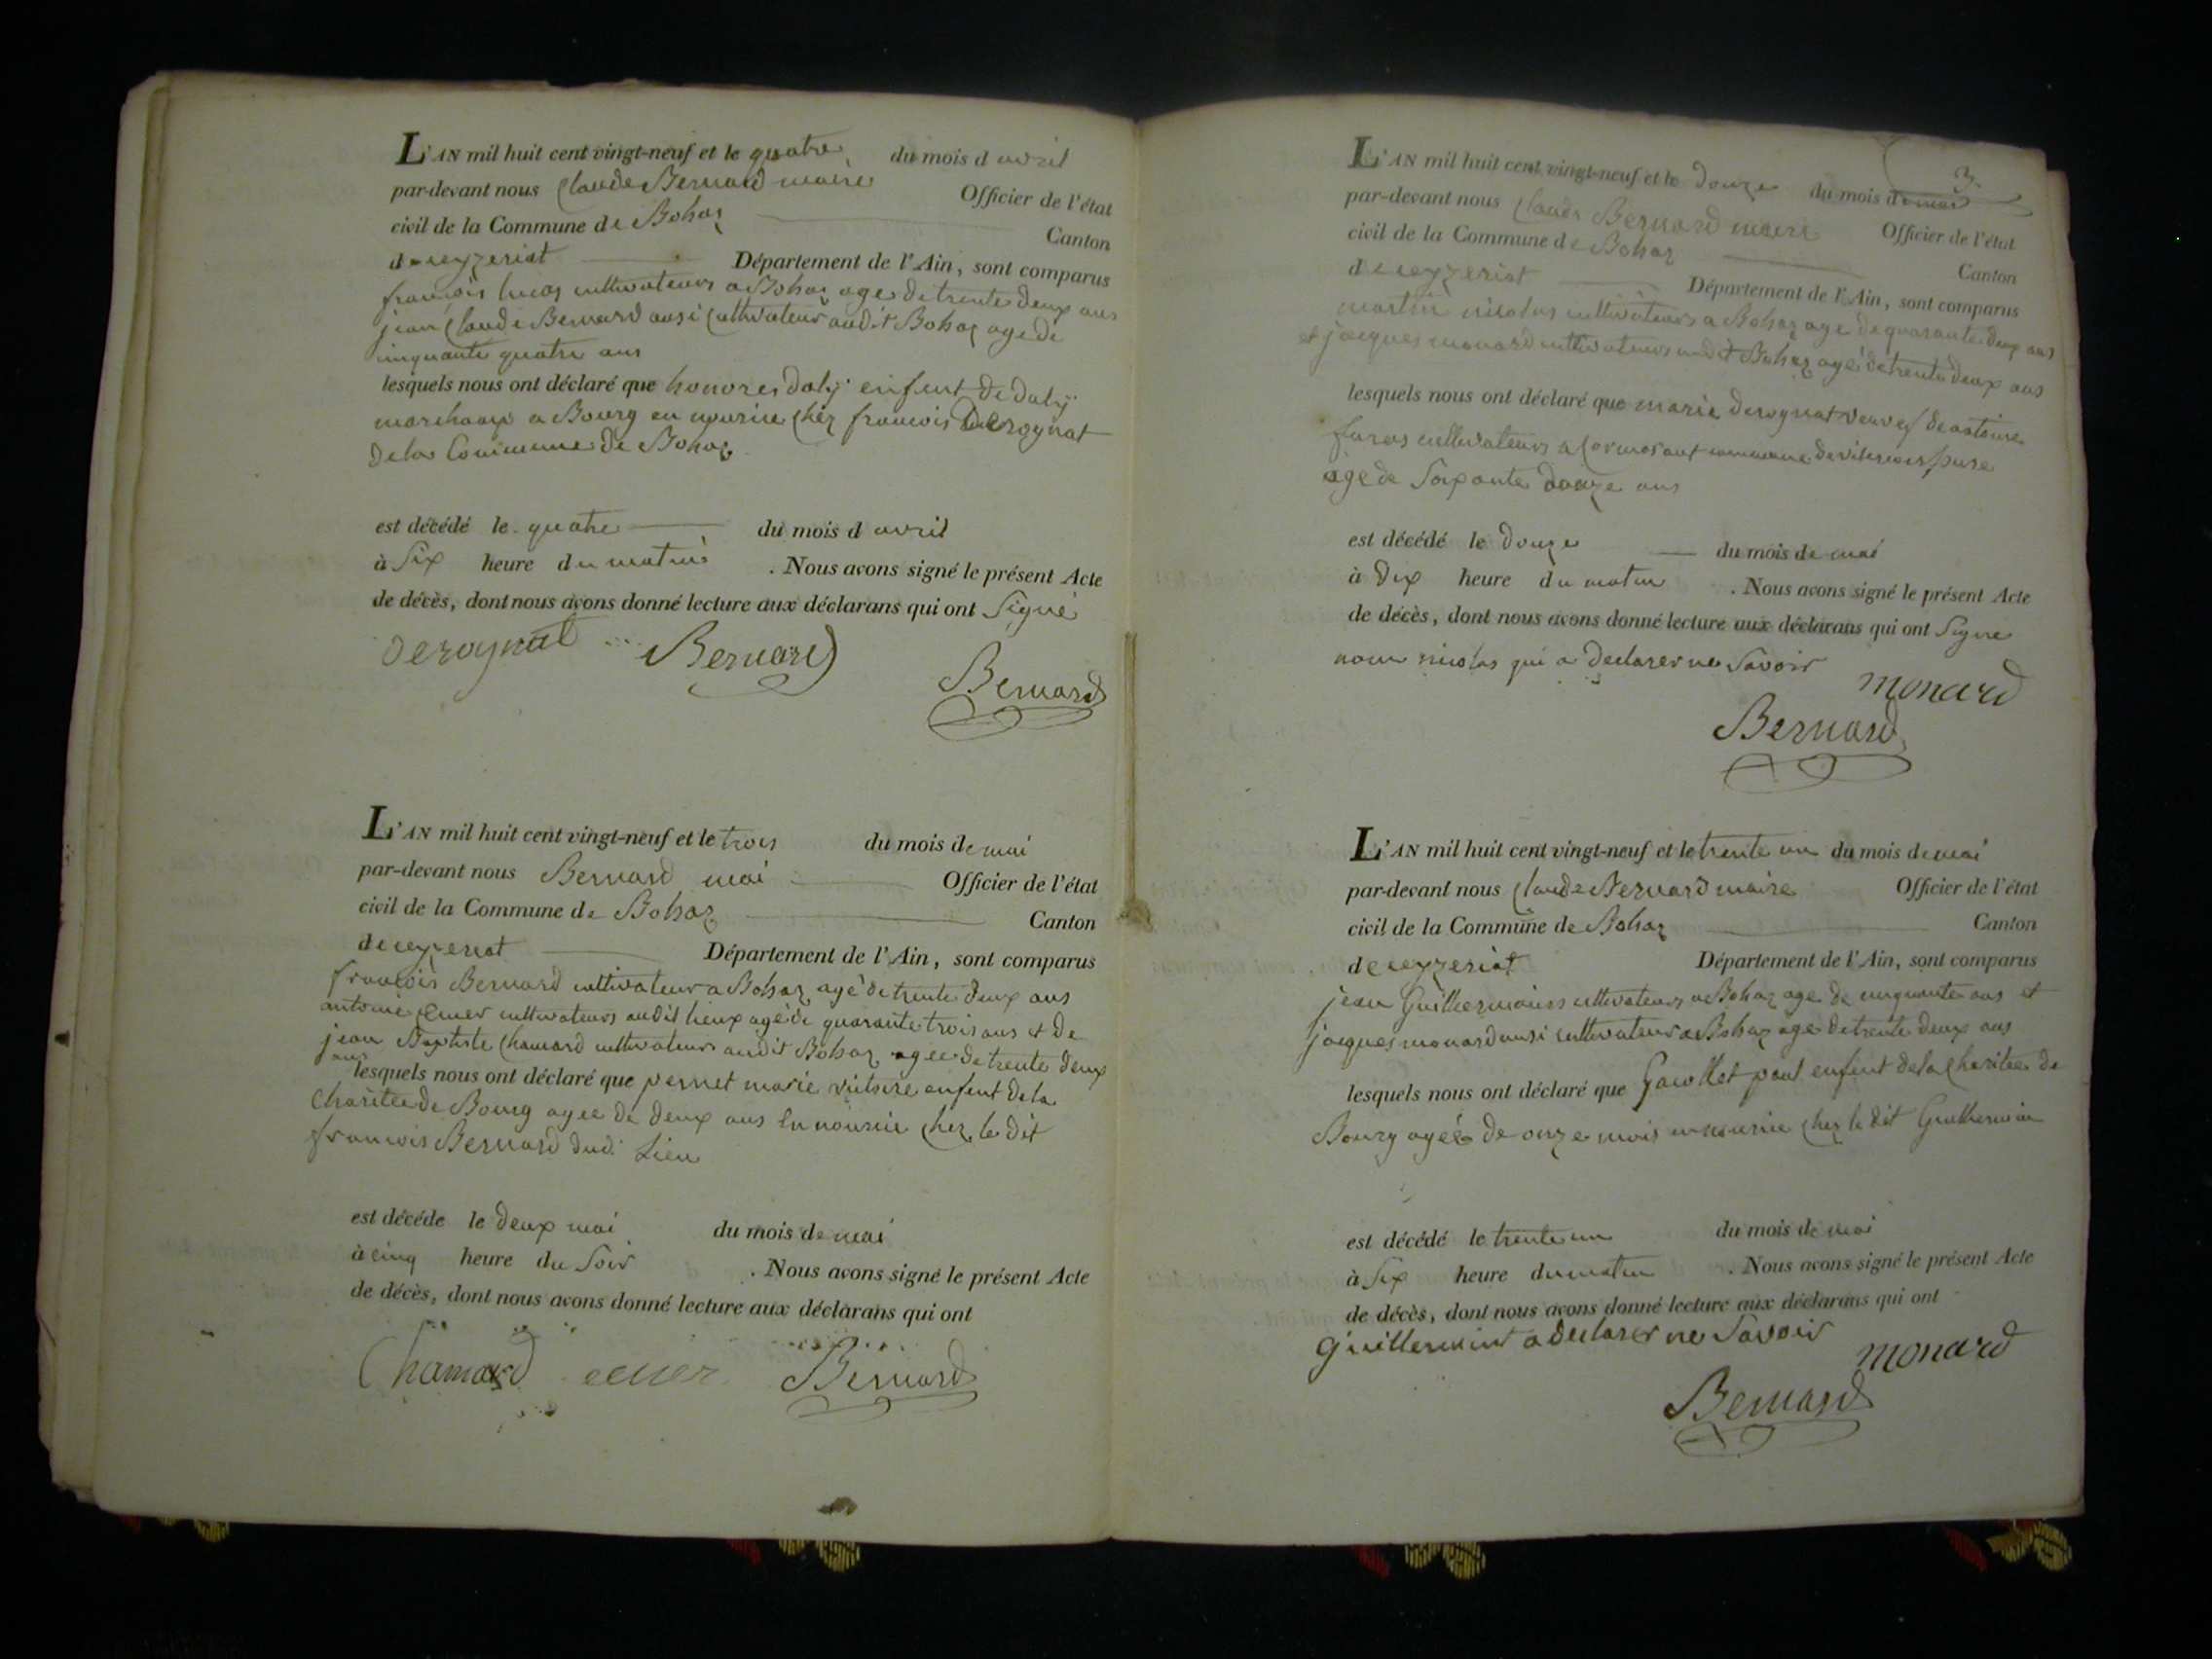 L'AN mil huit cent vingt-neuf et le quatre du mois d avril
par-devant nous Claude Bernard maire Officier de l'état
civil de la Commune de Bohaz Canton
de ceyzeriat Département de l'Ain, sont comparus
francois lucas cultivateurs a Bohaz age de trente deux ans
jean Claude Bernard ausi Cultivateur audit Bohaz age de
cinquante quatre ans
lesquels nous ont déclaré que honores daly enfent de daly
marchanp a Bourg en nourice chez francois Derognat
dela Commune de Bohaz
est décédé le quatre du mois d avril
à Six heure du matin . Nous avons signé le présent Acte
de décès, dont nous avons donné lecture aux déclarans qui ont Signé
Derognat Bernard
Bernard
L'AN mil huit cent vingt-neuf et le trois du mois de mai
par-devant nous Bernard mai Officier de l'état
civil de la Commune de Bohaz Canton
de ceyzeriat Département de l'Ain, sont comparus
francois Bernard cultivateur a Bohaz agé de trente deux ans
antoine cultivateurs audit lieux agé de quarante trois ans et de
jean Baptiste Chamard cultivateurs audit Bohaz agee de trente deux
ans
lesquels nous ont déclaré que pernet marie victoire enfent de la
Charitee de Bourg agee de deux ans En nourice chez le dit
francois Bernard dud. Lieu
est décéde le deux mai du mois de mai
à cinq heure du Soir . Nous avons signé le présent Acte
de décès, dont nous avons donné lecture aux déclarans qui ont
Chamard Bernard
3.
L'AN mil huit cent vingt-neuf et le douze du mois de mai
par-devant nous Claude Bernard maire Officier de l'état
civil de la Commune de Bohaz Canton
de ceyzeriat Département de l'Ain, sont comparus
martin nicolas cultivateurs a Bohaz age de quarante deux ans
et jacques monard cultivateurs audit Bohaz agé de trente deux ans
lesquels nous ont déclaré que marie derognat veuve de antoine
cultivateurs a commune de
age de Soixante douze ans
est décédé le douze du mois de mai
à dix heure du matin . Nous avons signé le présent Acte
de décès, dont nous avons donné lecture aux déclarans qui ont Signe
non nicolas qui a declarer ne Savoir
monard
Bernard
L'AN mil huit cent vingt-neuf et le trente un du mois de mai
par-devant nous Claude Bernard maire Officier de l'état
civil de la Commune de Bohaz Canton
de ceyzeriat Département de l'Ain, sont comparus
jean Guillermain cultivateurs a Bohaz age de cinquante ans et
jacques monard ausi cultivateur a Bohaz age de trente deux ans
lesquels nous ont déclaré que paul enfent dela Charitee de
Bourg ageé de onze mois en nourice chez le dit Guillermin
est décédé le trente un du mois de mai
à Six heure du matin . Nous avons signé le présent Acte
de décès, dont nous avons donné lecture aux déclarans qui ont
guillermint a declarer ne Savoir
monard
Bernard